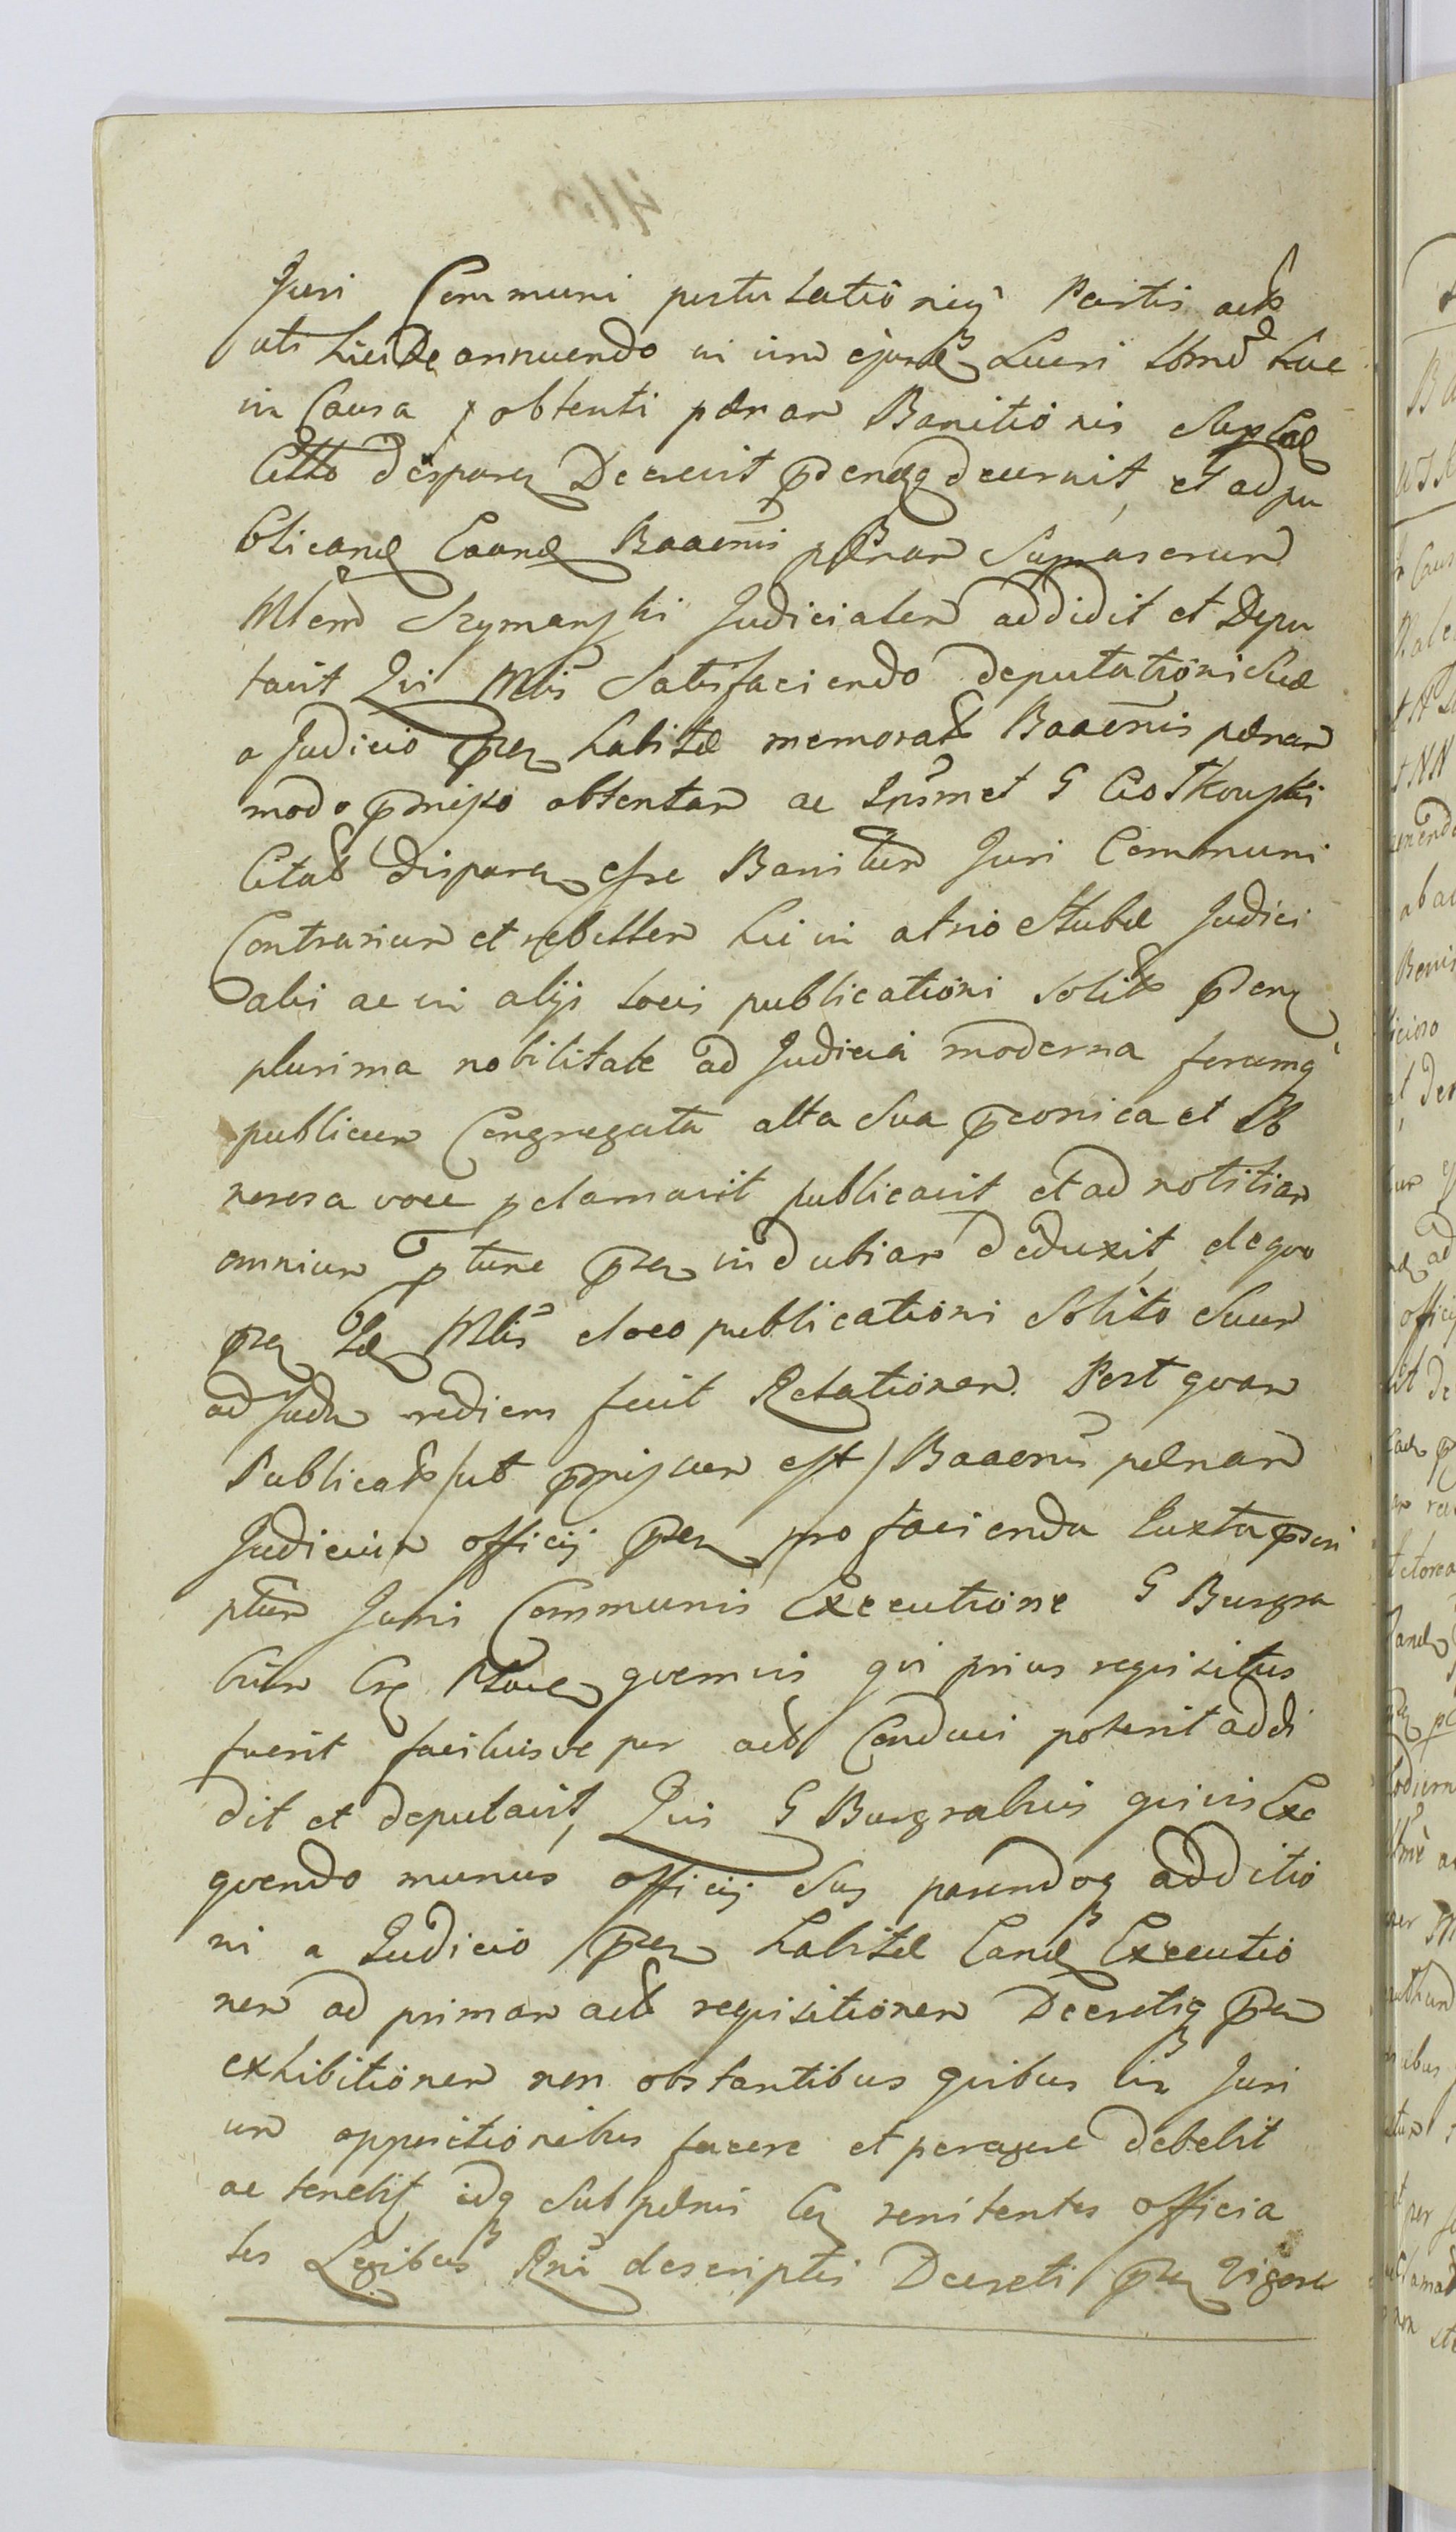 Juri Communi postulationiq Partis act
uti hicide annuendo in im ejusd Lucri ttmd huc
in Causa p obtenti pænam Banitionis Sup
Cttto disparen Decrevit pdenq decernit, et ad pu
blicand Eand Baaenis pænam Supraserum
Mlem Szymanski Judicialem addidit et Depu
tavit Qui Mlis Satisfaciendo deputationi Suæ
a Judicio pñ habitæ memorat Baaenis pænam
modo pmisso obtentam ac Ipsmet G Ciostkowski
Citat disparen esse Banitum Juri Communi
Contrarium et rebellem hic in atrio Stubæ Judici
alis ac in alijs locis publicationi solit pden
plurima nobilitate ad Judicia moderna forumq
publicum Congregata alta sua pconica et So
norosa voce pclamavit publicavit et ad notitiam
omnium p tunc pñ indubiam deduxit, de quo
pñ Id Mlis eloco publicationi Solito Suam
ad Judm rediens fecit Relationem. Post quam
Publicat /ut pmissum est/ Baaenis pænam
Judicium officij pñ pro facienda Juxta pscri
ptum Juris Communis Executione G Burgra
bium Crc quemvis qui prius requisitus
fuerit faciliusve per act Conduci poterit addi
dit et deputavit, Qui G Burgrabius quivis Exe
quendo munus officij Sui parendoq additio
ni a Judicio pñ habitæ Eand Executio
nem ad primam act requisitionem Decretiq pñ
exhibitionem non obstantibus quibus vis Juri
um oppositionibus facere et peragere debebit
ac tenebit idq Sub pænis in renitentes officia
les Legibus Rni descriptis Decreti pñ vigore